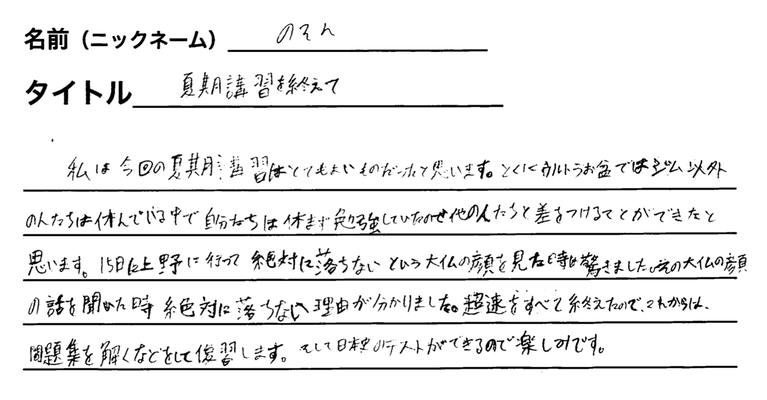 名前（ニックネーム） のぞん
タイトル 夏期講習を終えて
私は今回の夏期講習はとてもよいものだったと思います。とくにウルトラお盆ではジム以外
の人たちは休んでいる中で自分たちは休まず勉強していたので他の人たちと差をつけることができたと
思います。15日に上野に行って絶対に落ちないという大仏の顔を見た時は驚きました。その大仏の顔
の話を聞いた時絶対に落ちない理由が分かりました。超速をすべて終えたので、これからは、
問題集を解くなどをして復習します。そして日本史のテストができるので楽しみです。